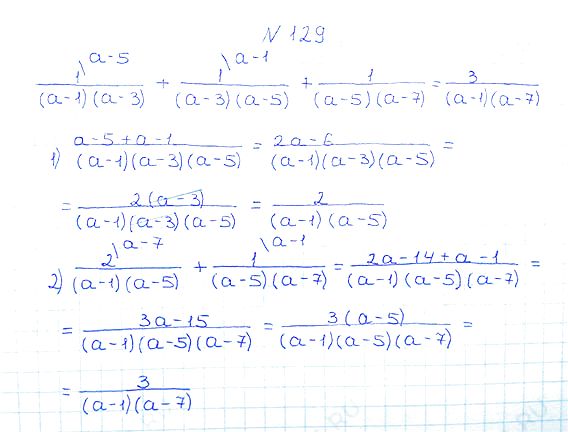 N 129
1\a-5/((a-1)(a-3)) + 1\a-1/((a-3)(a-5)) + 1/((a-5)(a-7)) = 3/((a-1)(a-7))
1) (a-5+a-1)/((a-1)(a-3)(a-5)) = (2a-6)/((a-1)(a-3)(a-5)) =
= 2(a-3)/((a-1)(a-3)(a-5)) = 2/((a-1)(a-5))
2) 2\a-7/((a-1)(a-5)) + 1\a-1/((a-5)(a-7)) = (2a-14+a-1)/((a-1)(a-5)(a-7)) =
= (3a-15)/((a-1)(a-5)(a-7)) = 3(a-5)/((a-1)(a-5)(a-7)) =
= 3/((a-1)(a-7))